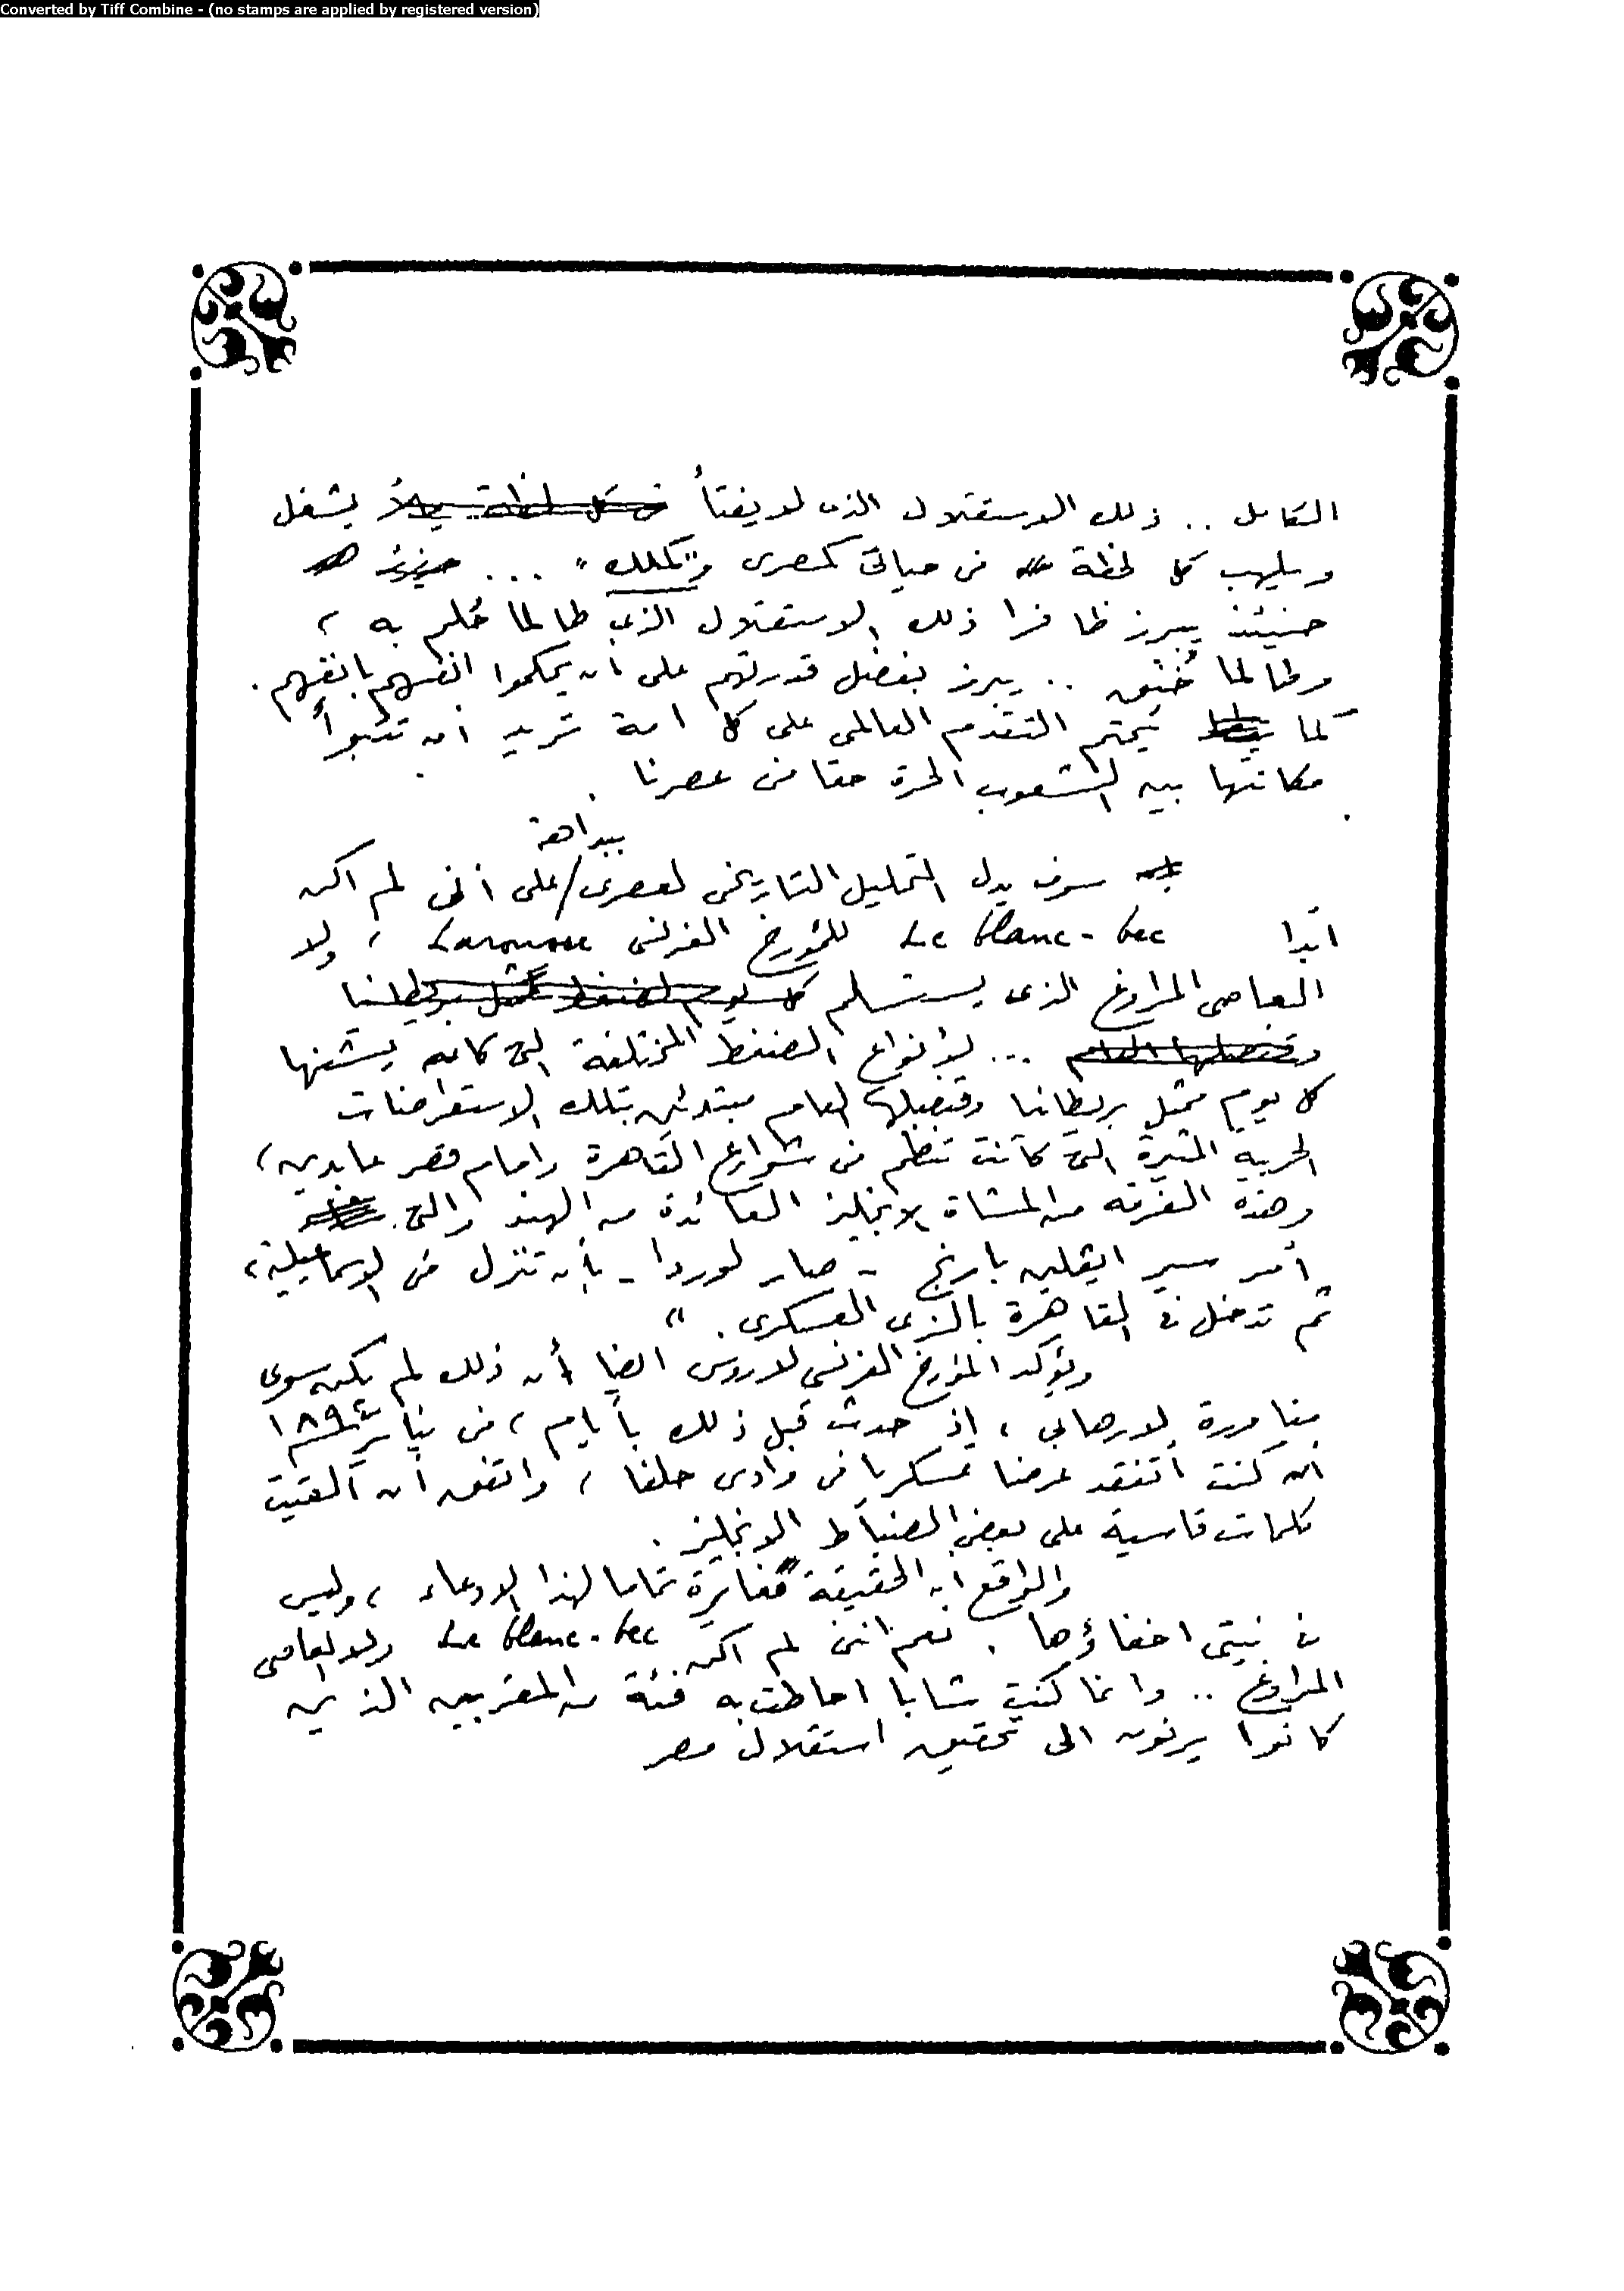 Converted by Tiff Combine - (no stamps are applied by registered version)
الكامل .. ذلك الاستقلال الذى لا يفتأ فى كل لحظة يملأ يشغل
ويلهب كل لحظة فى حياتى كمصرى و"كملك" ... حينئذ
حينئذ يبرز ظافرا ذلك الاستقلال الذى طالما حُلم به ،
وطالما خُنق .. يبرز بفضل قدرتهم على أن يحكموا انفسهم بانفسهم .
كما يحتم التقدم العالمى على كل امة تريد أن تتبوأ
مكانتها بين الشعوب الحرة حقا فى عصرنا .
ببداهة
سوف يدل التحليل التاريخى لعصرى / على أننى لم اكن
ابدا Le blanc-bec للمؤرخ الفرنسى Larousse ، ولا
العاصى المراوغ الذى يستسلم كل يوم لضغط ممثل بريطانيا
وقنصلها العام ... لأنواع الضغط المختلفة التى كان يشنها
كل يوم ممثل بريطانيا وقنصلها العام مبتدئين بتلك الاستعراضات
الحربية المثيرة التى كانت تنظم فى شوارع القاهرة وامام قصر عابدين ،
وهذه الفرقة من المشاة الانجليز العائدة من الهند والتى
أمر سير ايفلين بارنج - صار لوردا - بأن تنزل فى الاسماعيلية ،
ثم تدخل فى القاهرة بالزى العسكرى . "
ويؤكد المؤرخ الفرنسي لاروس ايضا أن ذلك لم يكن سوى
مناورة لارهابى ، إذ حدث قبل ذلك بأيام ، فى يناير ١٨٩٤
أن كنت أتفقد عرضا عسكريا فى وادى حلفا ، واتفق أن ألقيت
كلمات قاسية على بعض الضباط الانجليز .
والواقع أن الحقيقة مغايرة تماما لهذا الادعاء ، وليس
فى نيتى اخفاؤها . نعم اننى لم اكن Le blanc-bec ولا العاصى
المراوغ .. وانما كنت شابا احاطت به فئة من المقربين الذين
كانوا يرنون الى تحقيق استقلال مصر